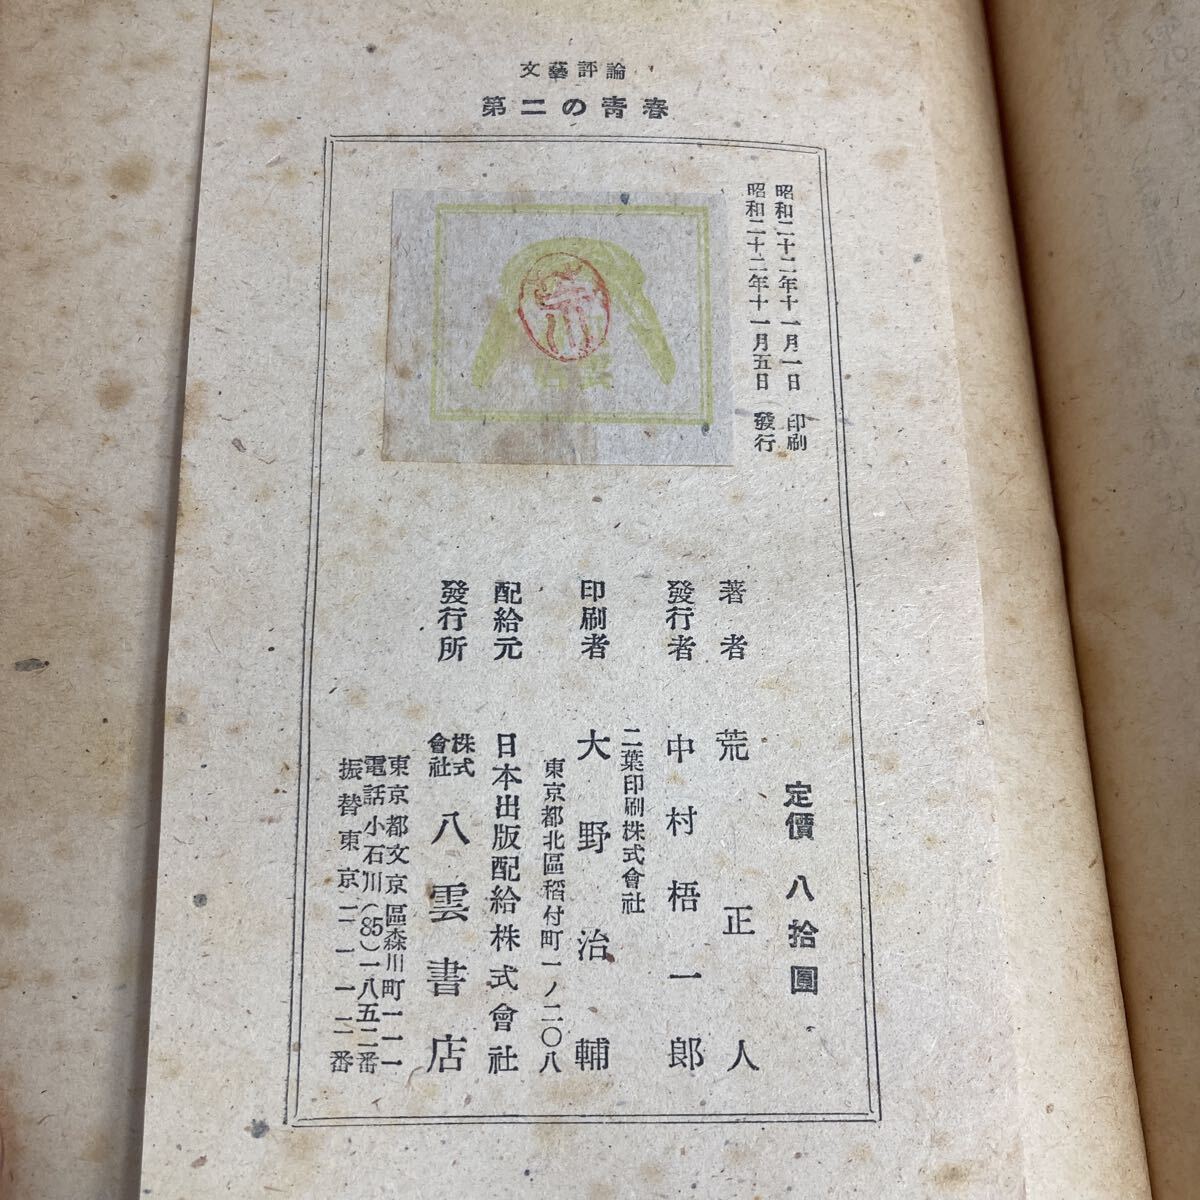 文藝評論
第二の靑春
昭和二十二年十一月一日 印刷
昭和二十二年十一月五日 發行
定價 八拾圓
著者 荒正人
發行者 中村梧一郎
二葉印刷株式會社
印刷者 大野治輔
東京都北區稻付町一ノ二〇八
配給元 日本出版配給株式會社
發行所 株式會社 八雲書店
東京都文京區森川町一一一
電話小石川(85)一八五二番